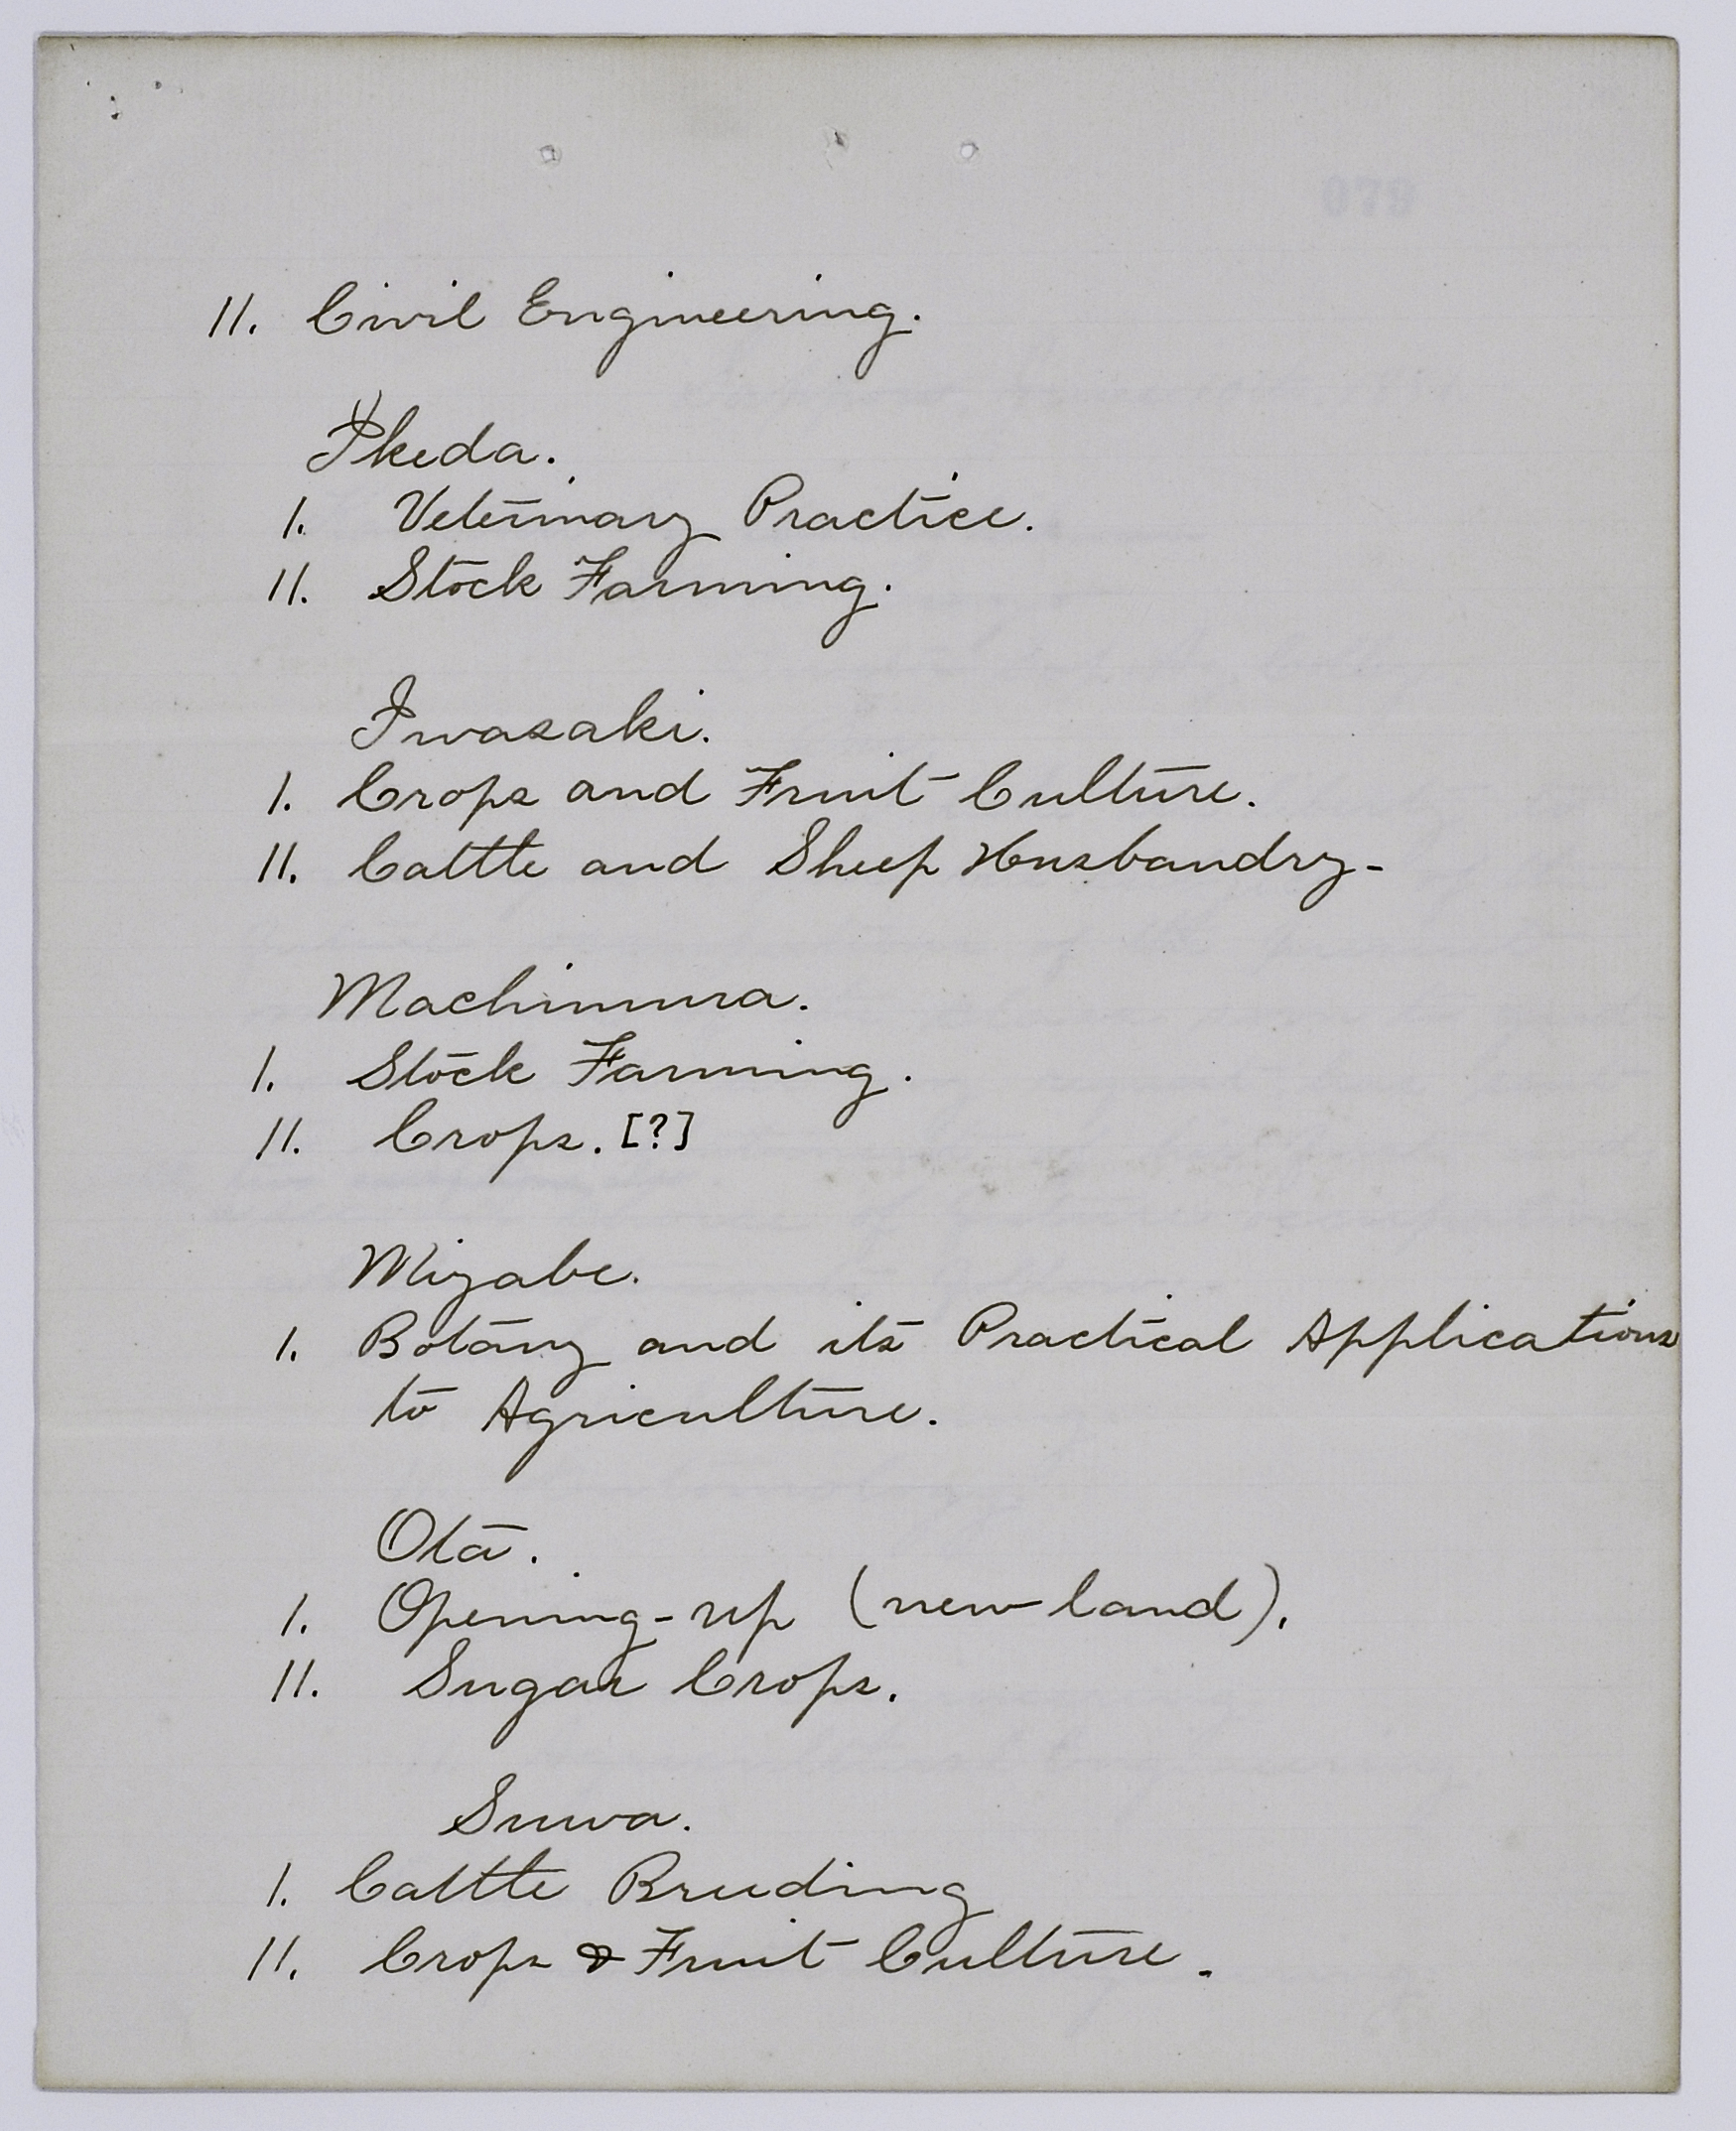 11. Civil Engineering.
Ikeda.
1. Veterinary Practice.
11. Stock Farming.
Iwasaki.
1. Crops and Fruit Culture.
11. Cattle and Sheep Husbandry-
Machimura.
1. Stock Farming.
11. Crops. [?]
Miyabe.
1. Botany and its Practical Applications
to Agriculture.
Ota.
1. Opening-up (new land).
11. Sugar Crops.
Suwa.
1. Cattle Breeding
11. Crops & Fruit Culture.